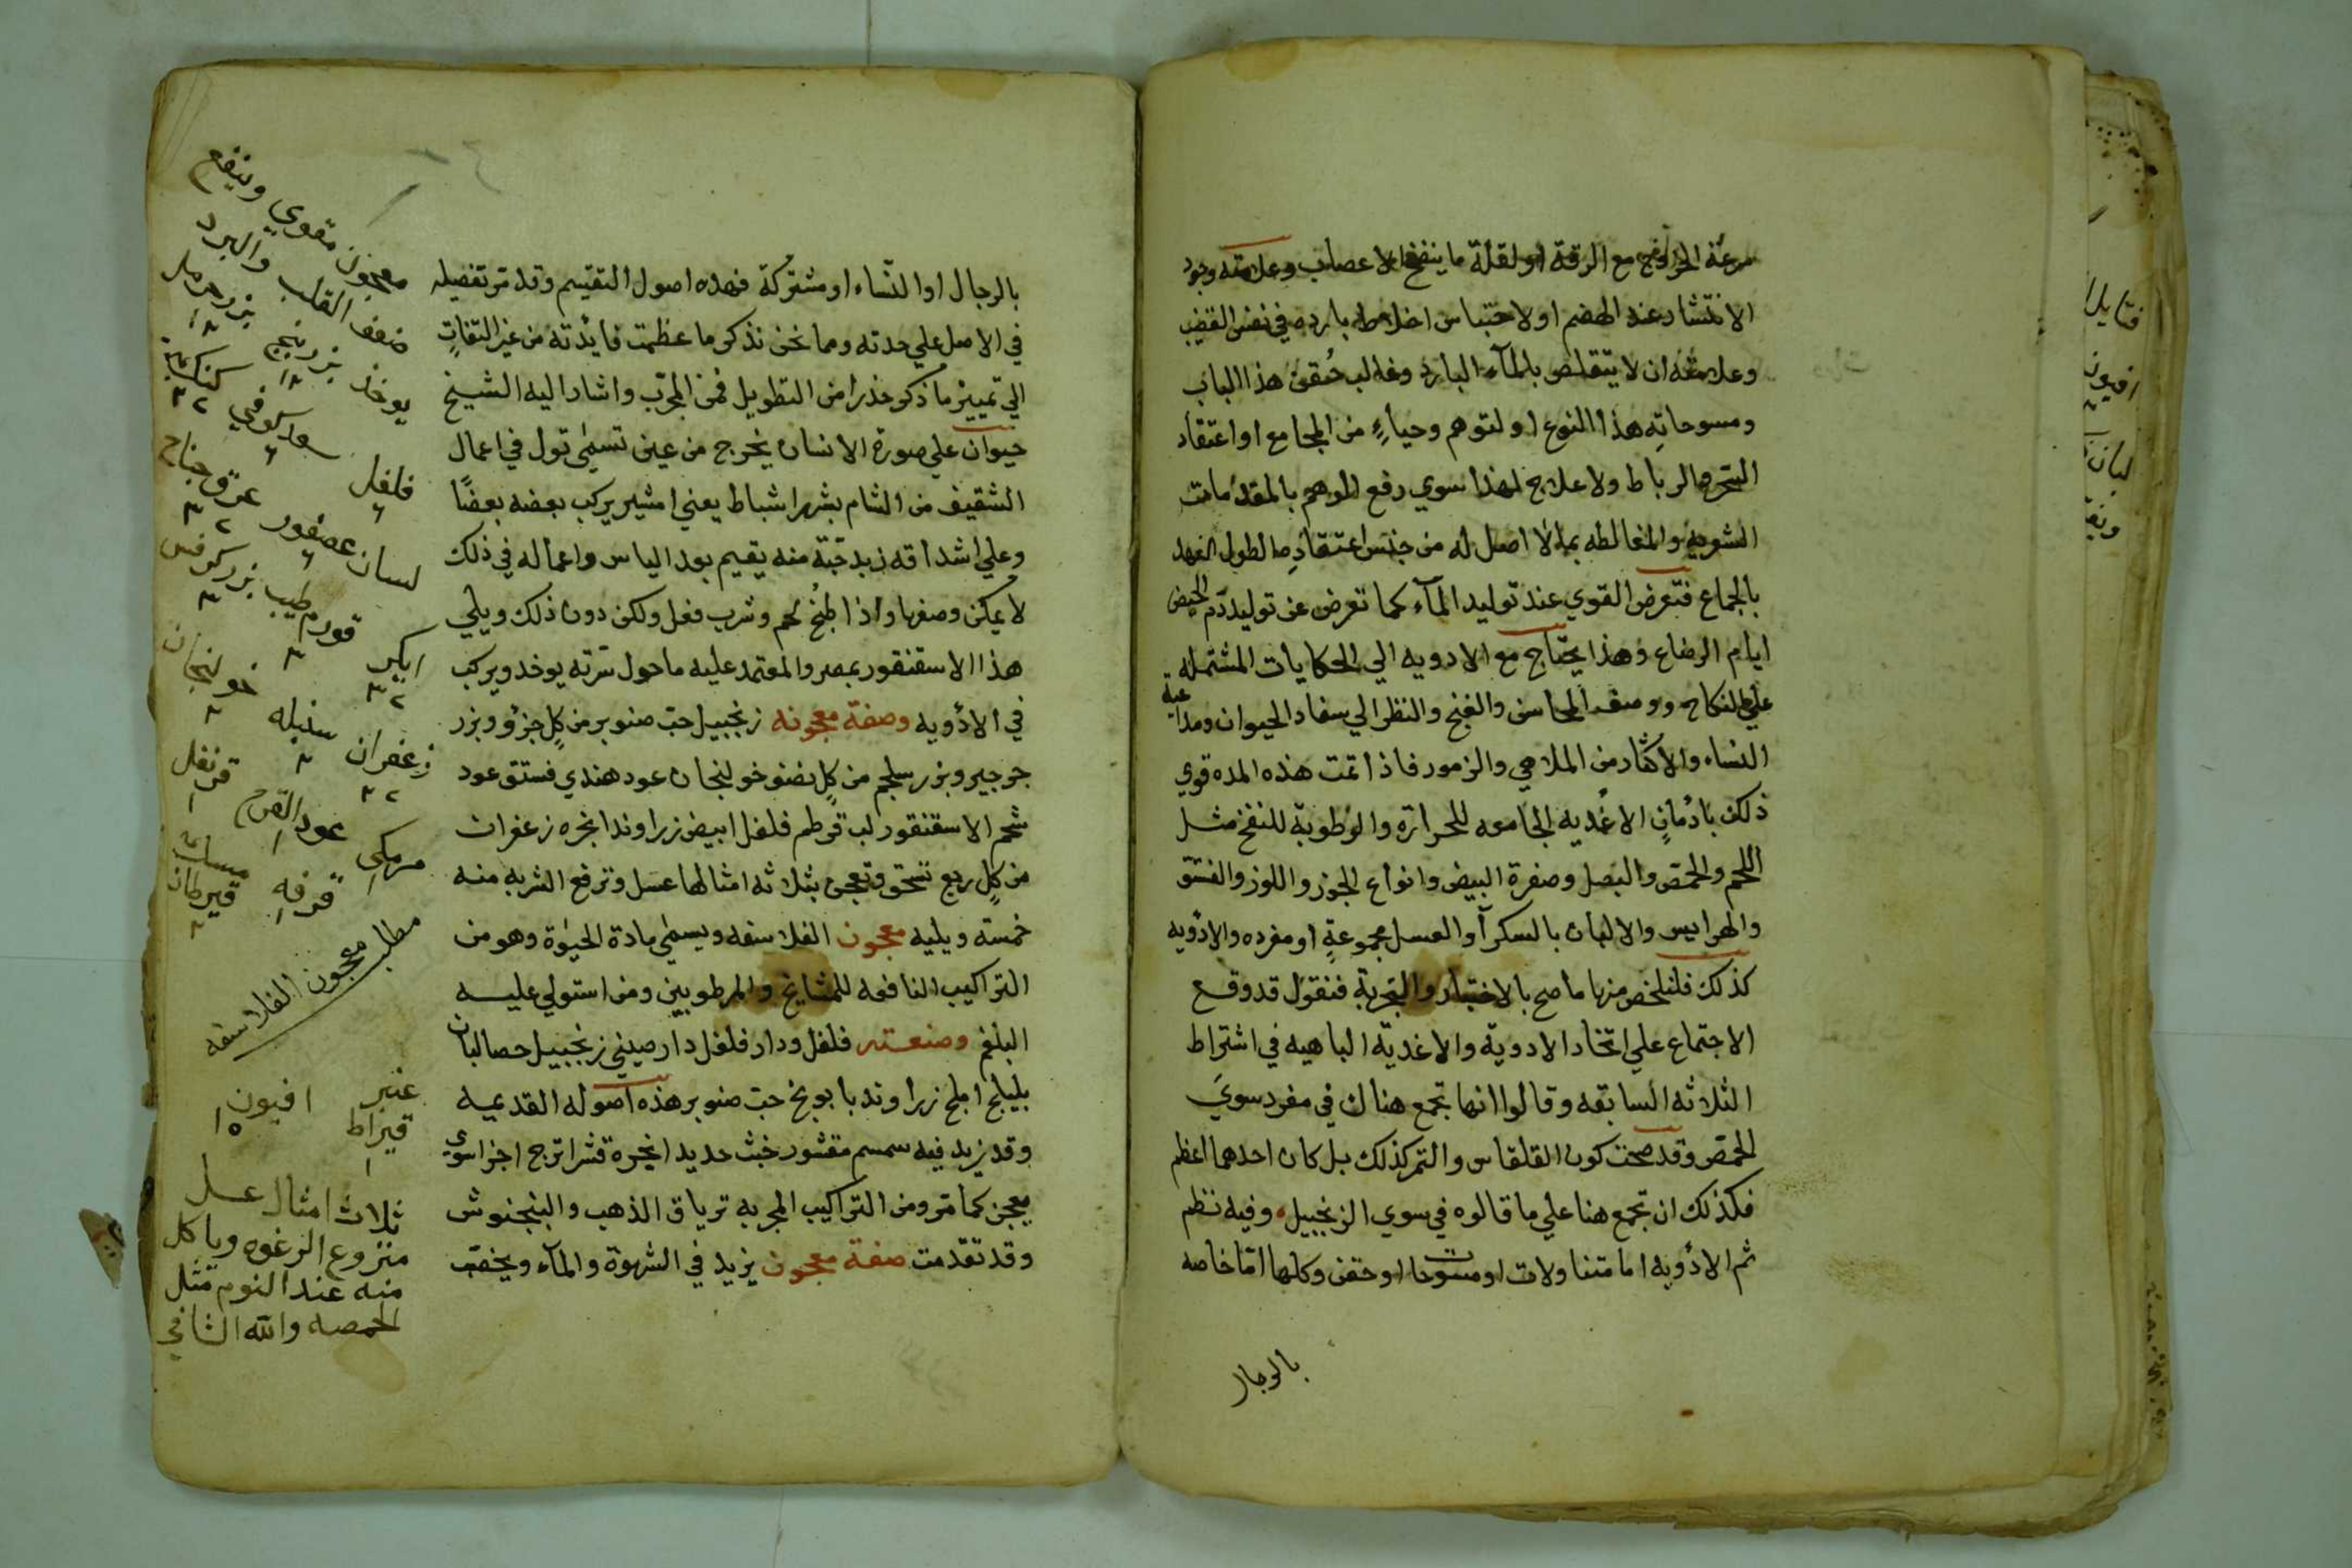 سرعة الحر مع الرقة او لقلة ما ينفخ الاعصاب وعلامته وجود
الانتشار عند الهضم او لاحتباس اخلاط بارده في نفس القضيب
وعلامته ان لا يتقلص بالمآء البارد وغالب حُقن هذا الباب
ومسوحاتِه هذا النوع او لتوهم وحياءٍ من المجامع او اعتقاد
السحر والرباط ولا علاج لهذا سوي رفع الوهم بالمقدمات
الشعريه والمغالطه بما لا اصل له من جنس اعتقادِه او لطول العهد
بالجماع فتعرض القوي عند توليد المآء كما تعرض عن توليد دم الحيض
ايام الرضاع وهذا يحتاج مع الادويه الي الحكايات المشتمله
علي النكاح ووصف المحاسن والغنج والنظر الي سفاد الحيوان ومداعبة
النساء والاكثار من الملاهي والزمور فاذا تمت هذه المده قوي
ذلك بادمانِ الاغديه الجامعه للحرارة والرطوبة للنفخ مثل
اللحم والحمص والبصل وصفرة البيض وانواع الجوز واللوز والفستق
والهرايس والالبان بالسكر او العسل مجموعةٍ او مفرده والادويه
كذلك فلنلخص منها ما صح بالاختبار والتجربة فنقول قد وقع
الاجتماع علي اتخاد الادوية والاغدية الباهيه في اشتراط
الثلاثه السابقه وقالوا انها تجمع هناك في مفرد سوي
الحمص وقد صحت كون القلقاس والتمر كذلك بل كان احدهما اعظم
فكذلك ان تجمع هنا علي ما قالوه في سوي الزنجبيل وفيه نظم
ثم الادويه اما متناولات او مسوحات او حقن وكلها اما خاصه
بالرجال
بالرجال او النساء او مشتركة فهده اصول التقيسم وقد مر تفصيله
في الاصل علي حدته ومما نحن نذكر ما عظمت فايدته من غير التفاتٍ
الي تمييز ما ذكر حذرا من التطويل فمن المجرب واشار اليه الشيخ
حيوان علي صورة الانسان يخرج من عين تسمي تول في اعمال
الشقيف من الشام بشهر اشباط يعني امشير يركب بعضه بعضًا
وعلي اشداقه زبد حبة منه يقيم بعد الياس واعماله في ذلك
لا يمكن وصفها واذا طبخ لحم وشرب فعل ولكن دون ذلك ويلي
هذا الاسقنقور بمصر والمعتمد عليه ما حول سرته يوخد ويركب
في الادويه وصفة معجونه زنجبيل حب صنوبر من كلٍ جزؤ وبزر
جرجير وبزر سلجم من كلٍ نصف خولنجان عود هندي فستق عود
شحم الاسقنقور لب قرطم فلفل ابيض زراوند انجره زعفران
من كلٍ ربع تسحق وتعجن بثلاثه امثالها عسل وترفع الشربه منه
خمسة ويليه معجون الفلاسفه ويسمي مادة الحيوٰة وهو من
التراكيب النافعه للمشايخ والمرطوبين ومن استولي عليه
البلغم وصنعته فلفل ودار فلفل دار صيني زنجبيل حصالبان
بليلج املج زراوند بابونج حب صنوبر هذه اصوله القديميه
وقد زيد فيه سمسم مقشور خبث حديد انجرة قشر اترج اجزا سوي
يعجن كما مر ومن التراكيب المجربه ترياق الذهب والبنجنوش
وقد تقدمت صفة معجون يزيد في الشهوة والمآء ويخصب
معجون مقوي وينفع
ضعف القلب والبرد
يوخذ بزر بنج بزر حرمل
فلفل
لسان عصفور عرق جناح
ايكر قورم طيب بزر كرفس
زعفران سنبله خولنجان
مرمكي عود القرح قرنفل
قرفه مسك قيرطان
مطلب معجون الفلاسفه
عنبر افيون
قيراط
ثلاث امثال عسل
منزوع الرغوه وياكل
منه عند النوم مثل
الحمصه والله الشافي
فتايل
افيون
لبان